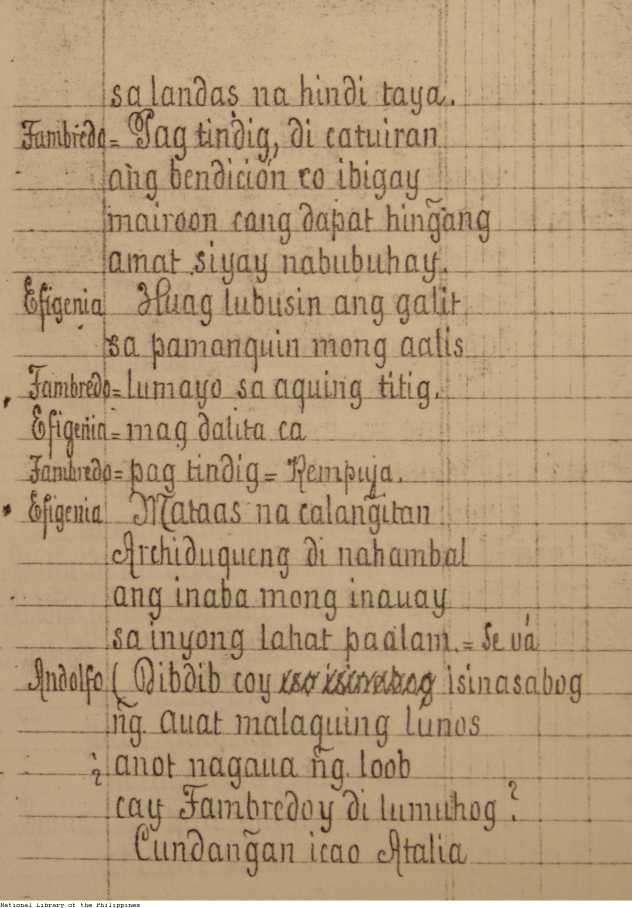 sa landas na hindi taya.
Fambredo = Pag tindig, di catuiran
ang bendición co ibigay
mairoon cang dapat hing̃ang
amat siyay nabubuhay.
Efigenia Huag lubusin ang galit
sa pamanquin mong aalis
Fambredo = lumayo sa aquing titig.
Efigenia = mag dalita ca
Fambredo = pag tindig = Rempuja.
Efigenia Mataas na calang̃itan
Archiduqueng di nahambal
ang inaba mong inauay
sa inyong lahat paalam. = Se vá
Andolfo ( Dibdib coy isinasabog
ñg. auat malaquing lunos
¿ anot nagaua ñg. loob
cay Fambredoy di lumuhog ?
Cundang̃an icao Atalia
National Library of the Philippines